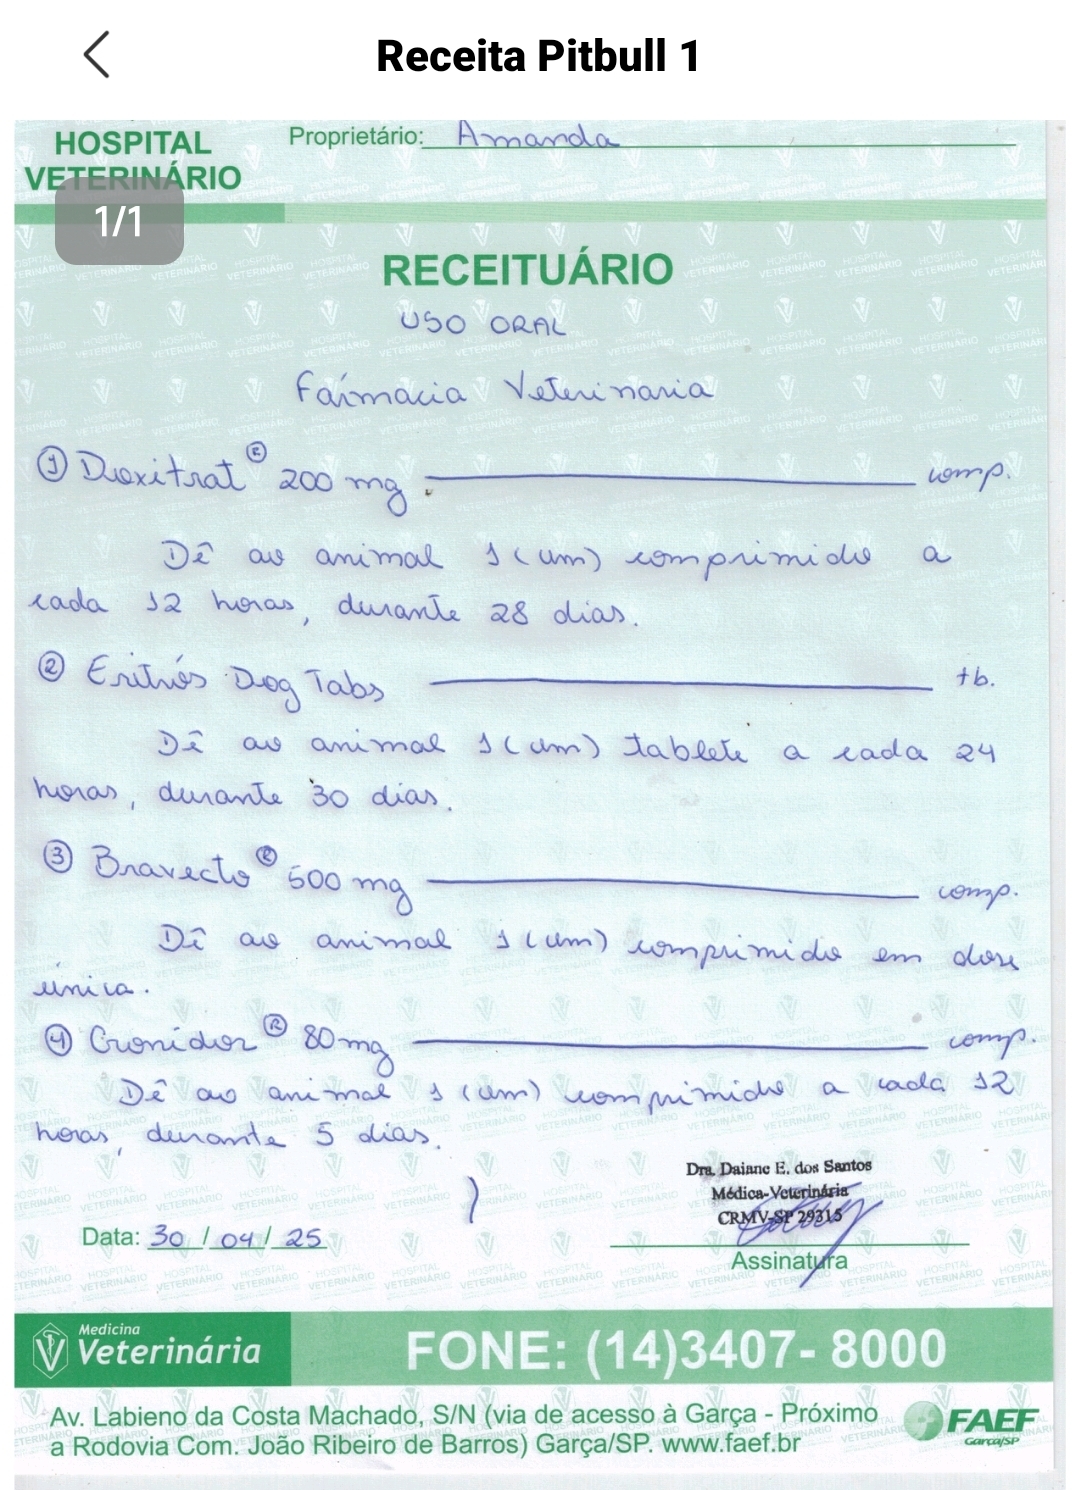 Receita Pitbull 1
HOSPITAL
VETERINÁRIO
Proprietário: Amanda
1/1
RECEITUÁRIO
USO ORAL
Farmacia Veterinaria
1 Doxitrat® 200 mg comp.
Dê ao animal 1 (um) comprimido a
cada 12 horas, durante 28 dias.
2 Eritrós Dog Tabs tb.
Dê ao animal 1 (um) tablete a cada 24
horas, durante 30 dias.
3 Bravecto® 500 mg comp.
Dê ao animal 1 (um) comprimido em dose
única.
4 Cronidor® 80mg comp.
Dê ao animal 1 (um) comprimido a cada 12
horas, durante 5 dias.
Dra. Daiane E. dos Santos
Médica-Veterinária
CRMV-SP 29315
Data: 30/04/25
Assinatura
Medicina
Veterinária
FONE: (14)3407- 8000
Av. Labieno da Costa Machado, S/N (via de acesso à Garça - Próximo
a Rodovia Com. João Ribeiro de Barros) Garça/SP. www.faef.br
FAEF
Garça/SP